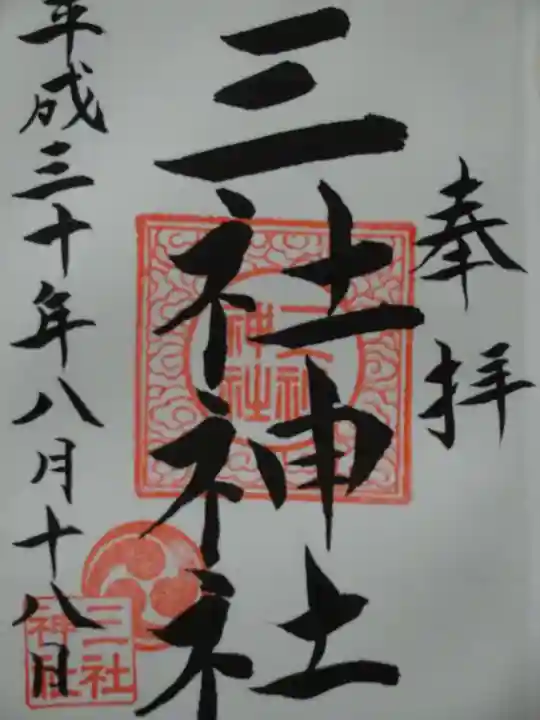 奉拝
三社神社
平成三十年八月十八日
三社神社
三社
神社